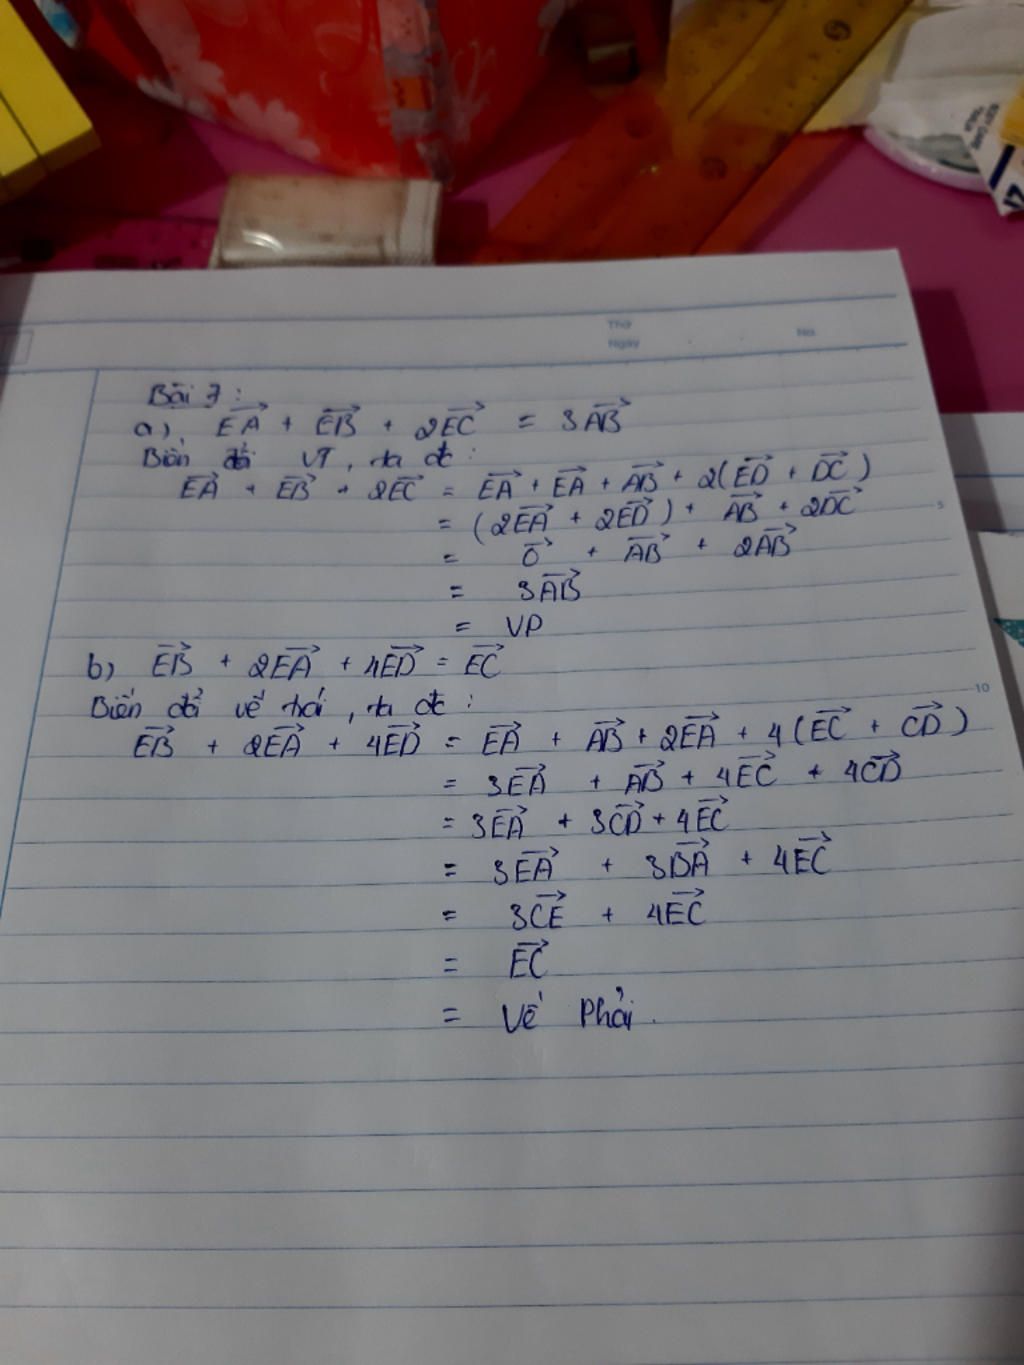 Thứ
Ngày
No.
Bài 7 :
a), EA→ + EB→ + 2EC→ = 3AB→
Biến đổi VT, ta đc :
EA→ + EB→ + 2EC→ = EA→ + EA→ + AB→ + 2(ED→ + DC→)
= (2EA→ + 2ED→) + AB→ + 2DC→
= 0→ + AB→ + 2AB→
= 3AB→
= VP
b) EB→ + 2EA→ + 4ED→ = EC→
Biến đổi vế trái, ta đc :
EB→ + 2EA→ + 4ED→ = EA→ + AB→ + 2EA→ + 4(EC→ + CD→)
= 3EA→ + AB→ + 4EC→ + 4CD→
= 3EA→ + 3CD→ + 4EC→
= 3EA→ + 3BA→ + 4EC→
= 3CE→ + 4EC→
= EC→
= Vế Phải.
5
10